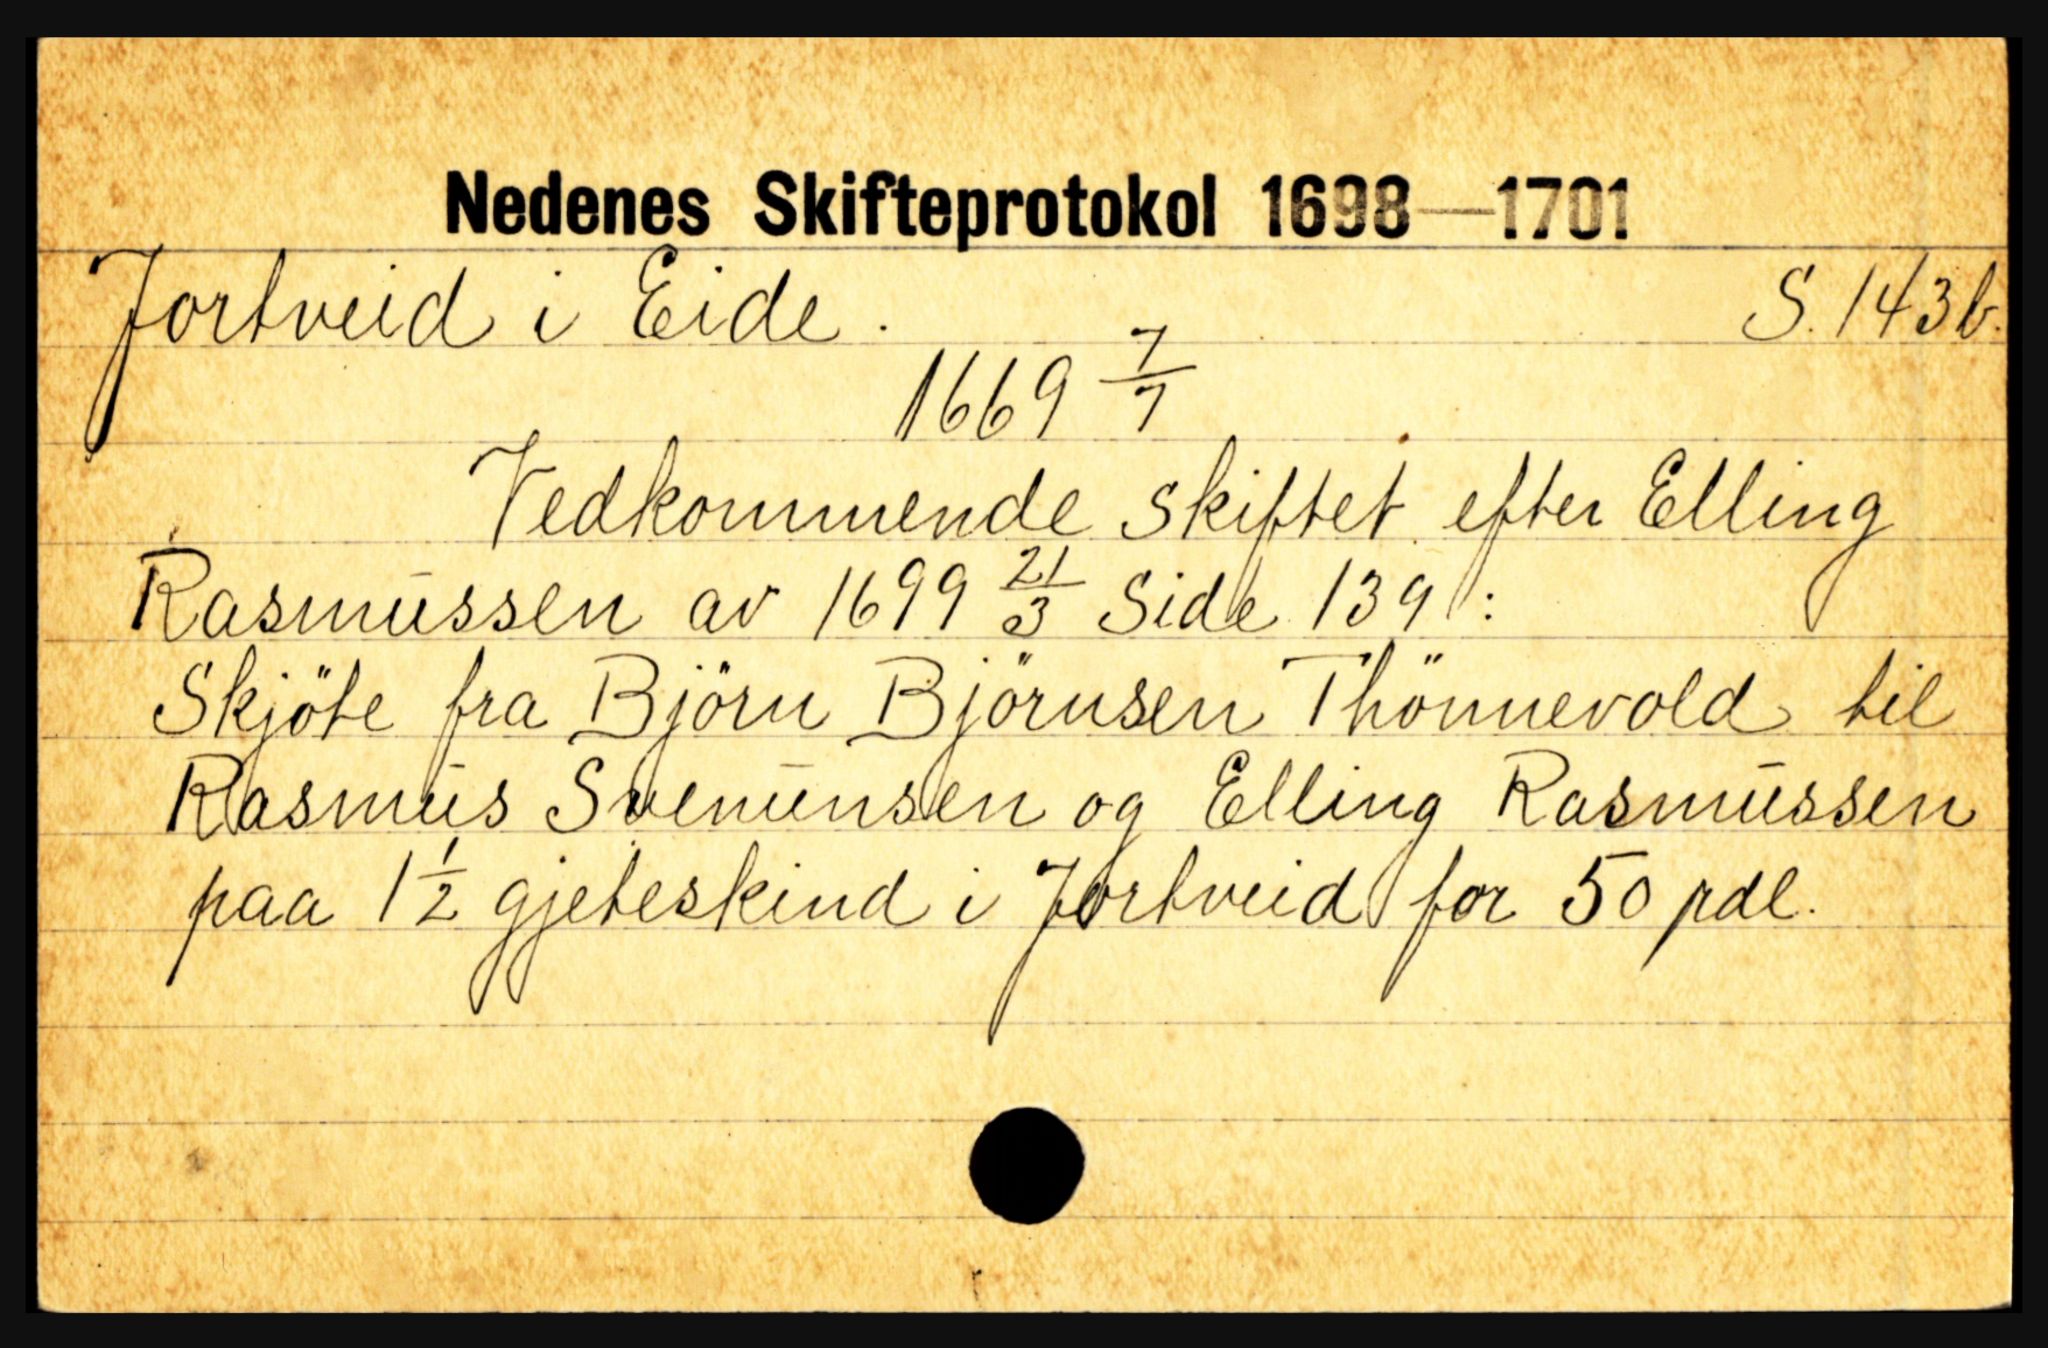 Nedenes Skifteprotokol 1698—1701
Jortveid i Eide. S. 143b.
1669 7/7
Vedkommende skiftet efter Elling
Rasmussen av 1699 21/3 Side 139:
Skjöte fra Björn Björnsen Thönnevold til
Rasmus Svenunsen og Elling Rasmussen
paa 1 1/2 gjeteskind i Jortveid for 50 rdl.